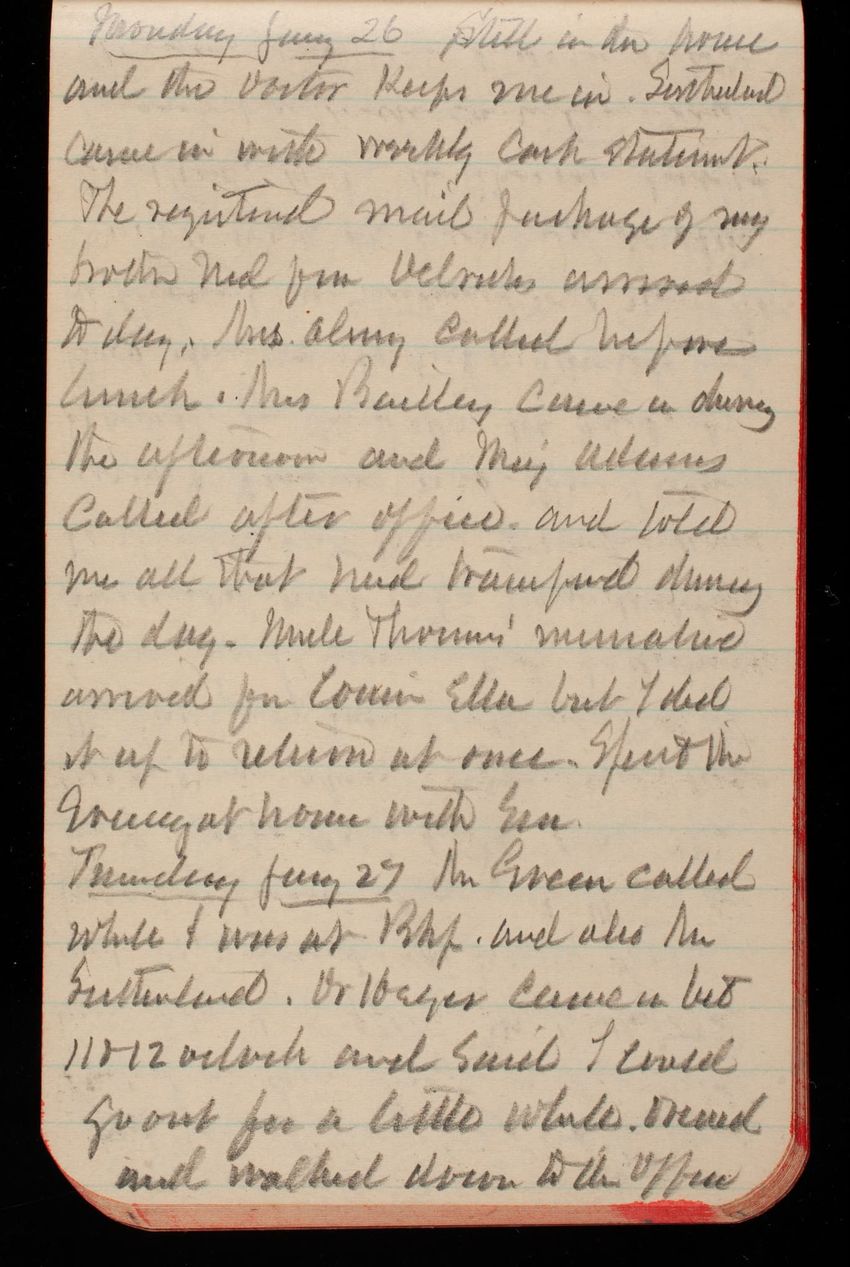 Monday Jany 26 Still in the house
and the Doctor Keeps me in. Sutherland
came in with weekly Cash statement.
The registered mail package of my
brother Ned from Velvicks arrived
to day. Mrs. Almy Called before
lunch. Mrs Bailley came in during
the afternoon and Maj Adams
Called after office. and told
me all that had transpired during
the day. Uncle Thomas'
arrived for Cousin Ella but I did
it up to return at once. Spent the
Evening at home with
Tuesday Jany 27 Mr Green called
while I was at Bkf. and also Mr
Sutherland. Dr Hagen came in bet
11 & 12 oclock and said I could
go out for a little while. Dressed
and walked down to the Office